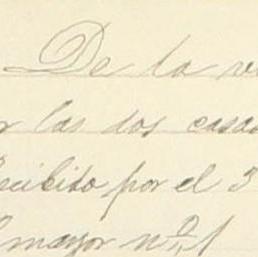 De la
las dos casas
Recibido por el 3
mayor nº 1